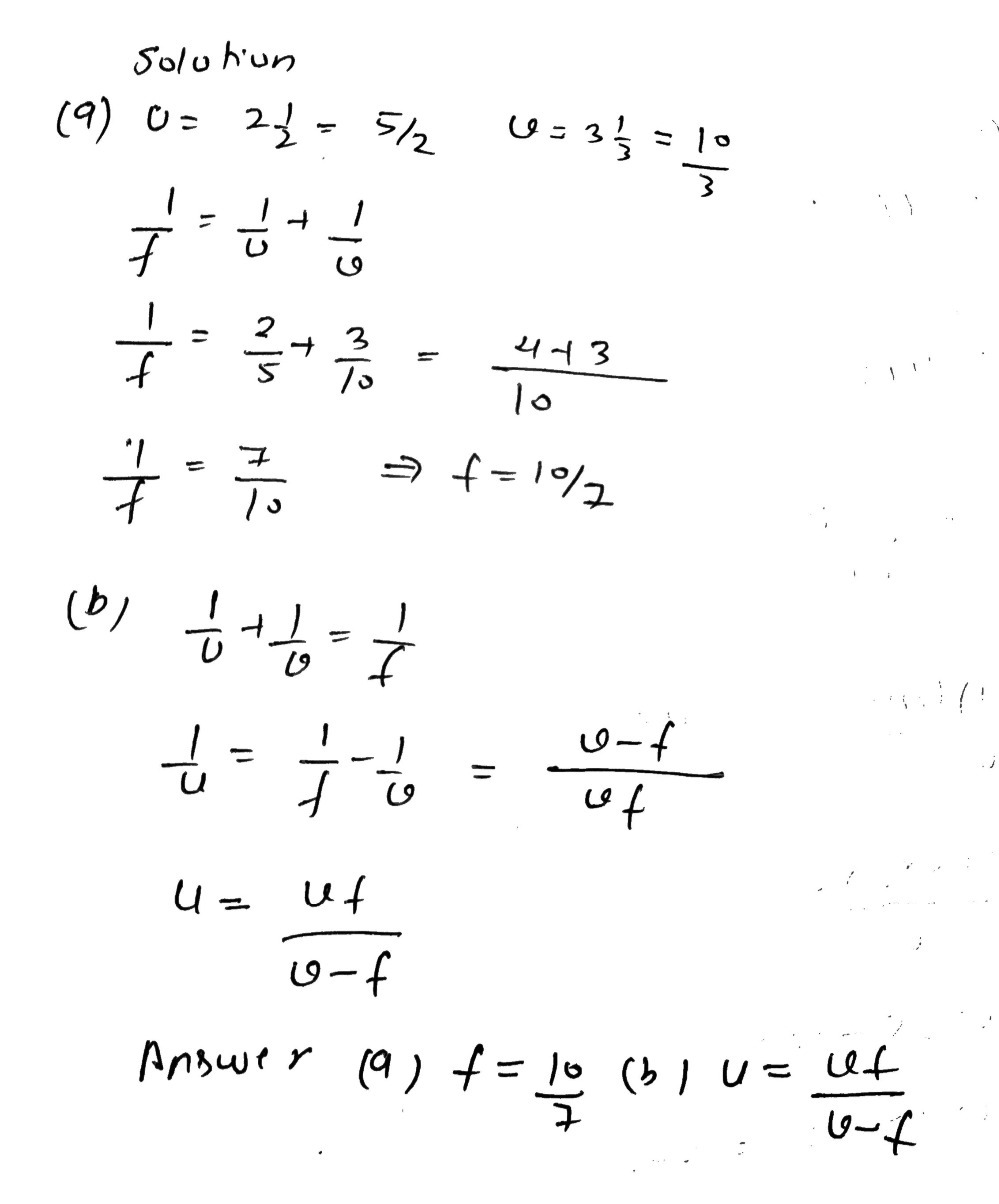 Solution
(a) u = 2 1/2 = 5/2 v = 3 1/3 = 10/3
1/f = 1/u + 1/v
1/f = 2/5 + 3/10 = (4+3)/10
1/f = 7/10 ⇒ f = 10/7
(b) 1/u + 1/v = 1/f
1/u = 1/f - 1/v = (v-f)/(vf)
u = uf/(v-f)
Answer (a) f = 10/7 (b) u = vf/(v-f)